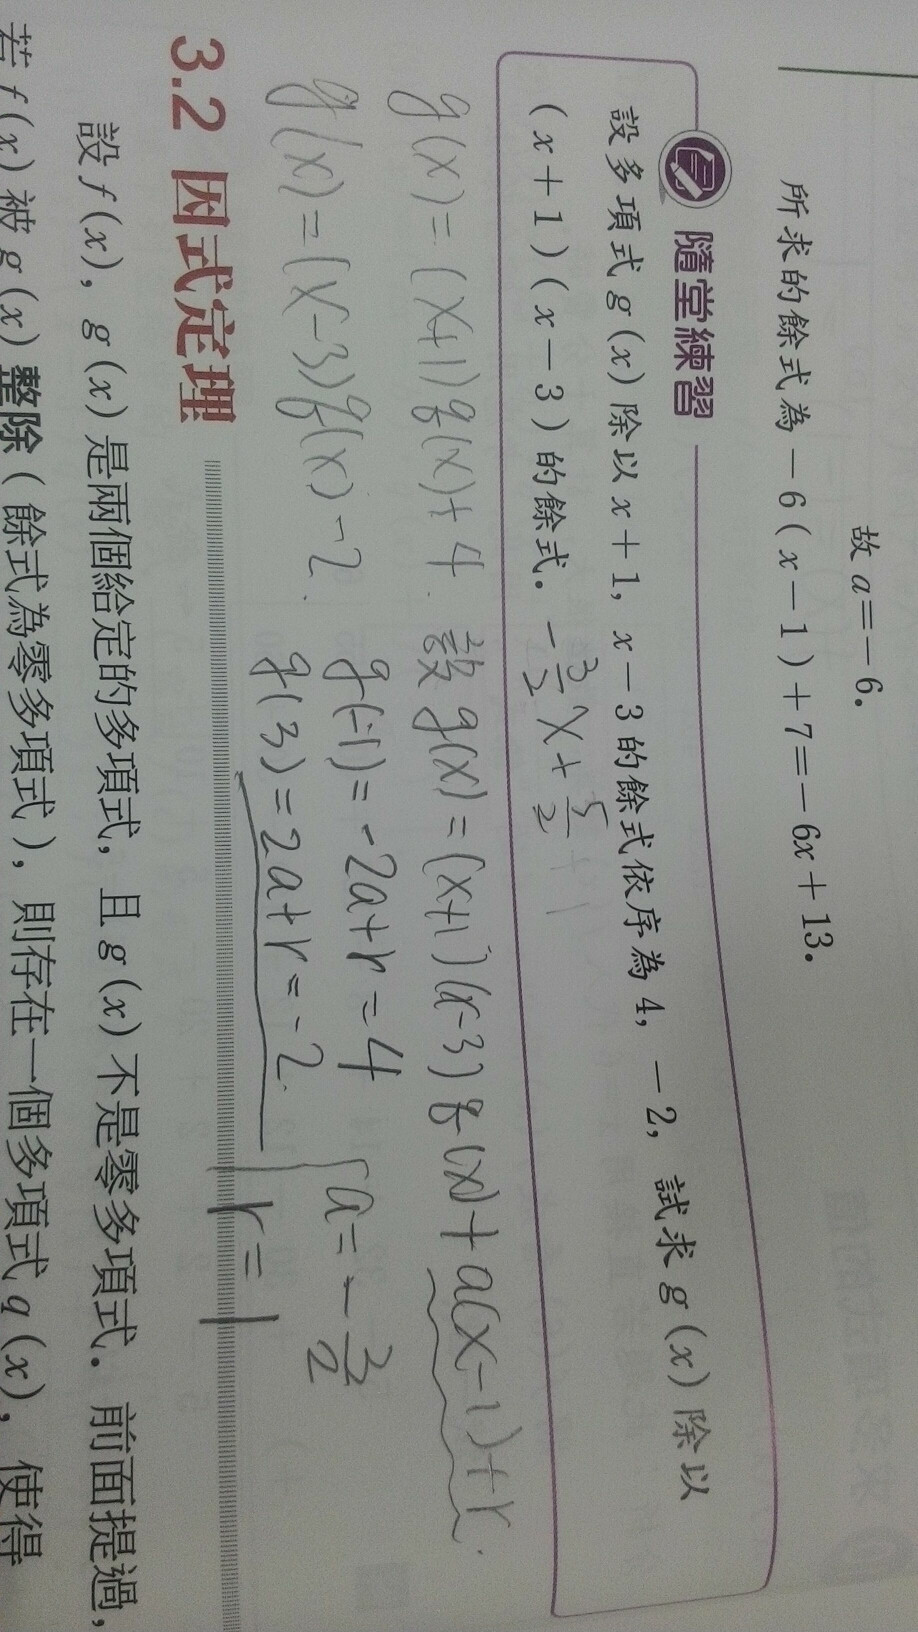 故 a=-6.
所求的餘式為 -6(x-1)+7=-6x+13.
隨堂練習
設多項式 g(x) 除以 x+1, x-3 的餘式依序為 4, -2, 試求 g(x) 除以
(x+1)(x-3) 的餘式. -3/2 x + 5/2
g(x)=(x+1)q(x)+4. 設 g(x)=(x+1)(x-3)q(x)+a(x-1)+r.
g(x)=(x-3)q(x)-2.
g(-1)=-2a+r=4
g(3)=2a+r=-2.
a=-3/2
r=1
3.2 因式定理
設 f(x), g(x) 是兩個給定的多項式, 且 g(x) 不是零多項式. 前面提過,
若 f(x) 被 g(x) 整除(餘式為零多項式), 則存在一個多項式 q(x), 使得